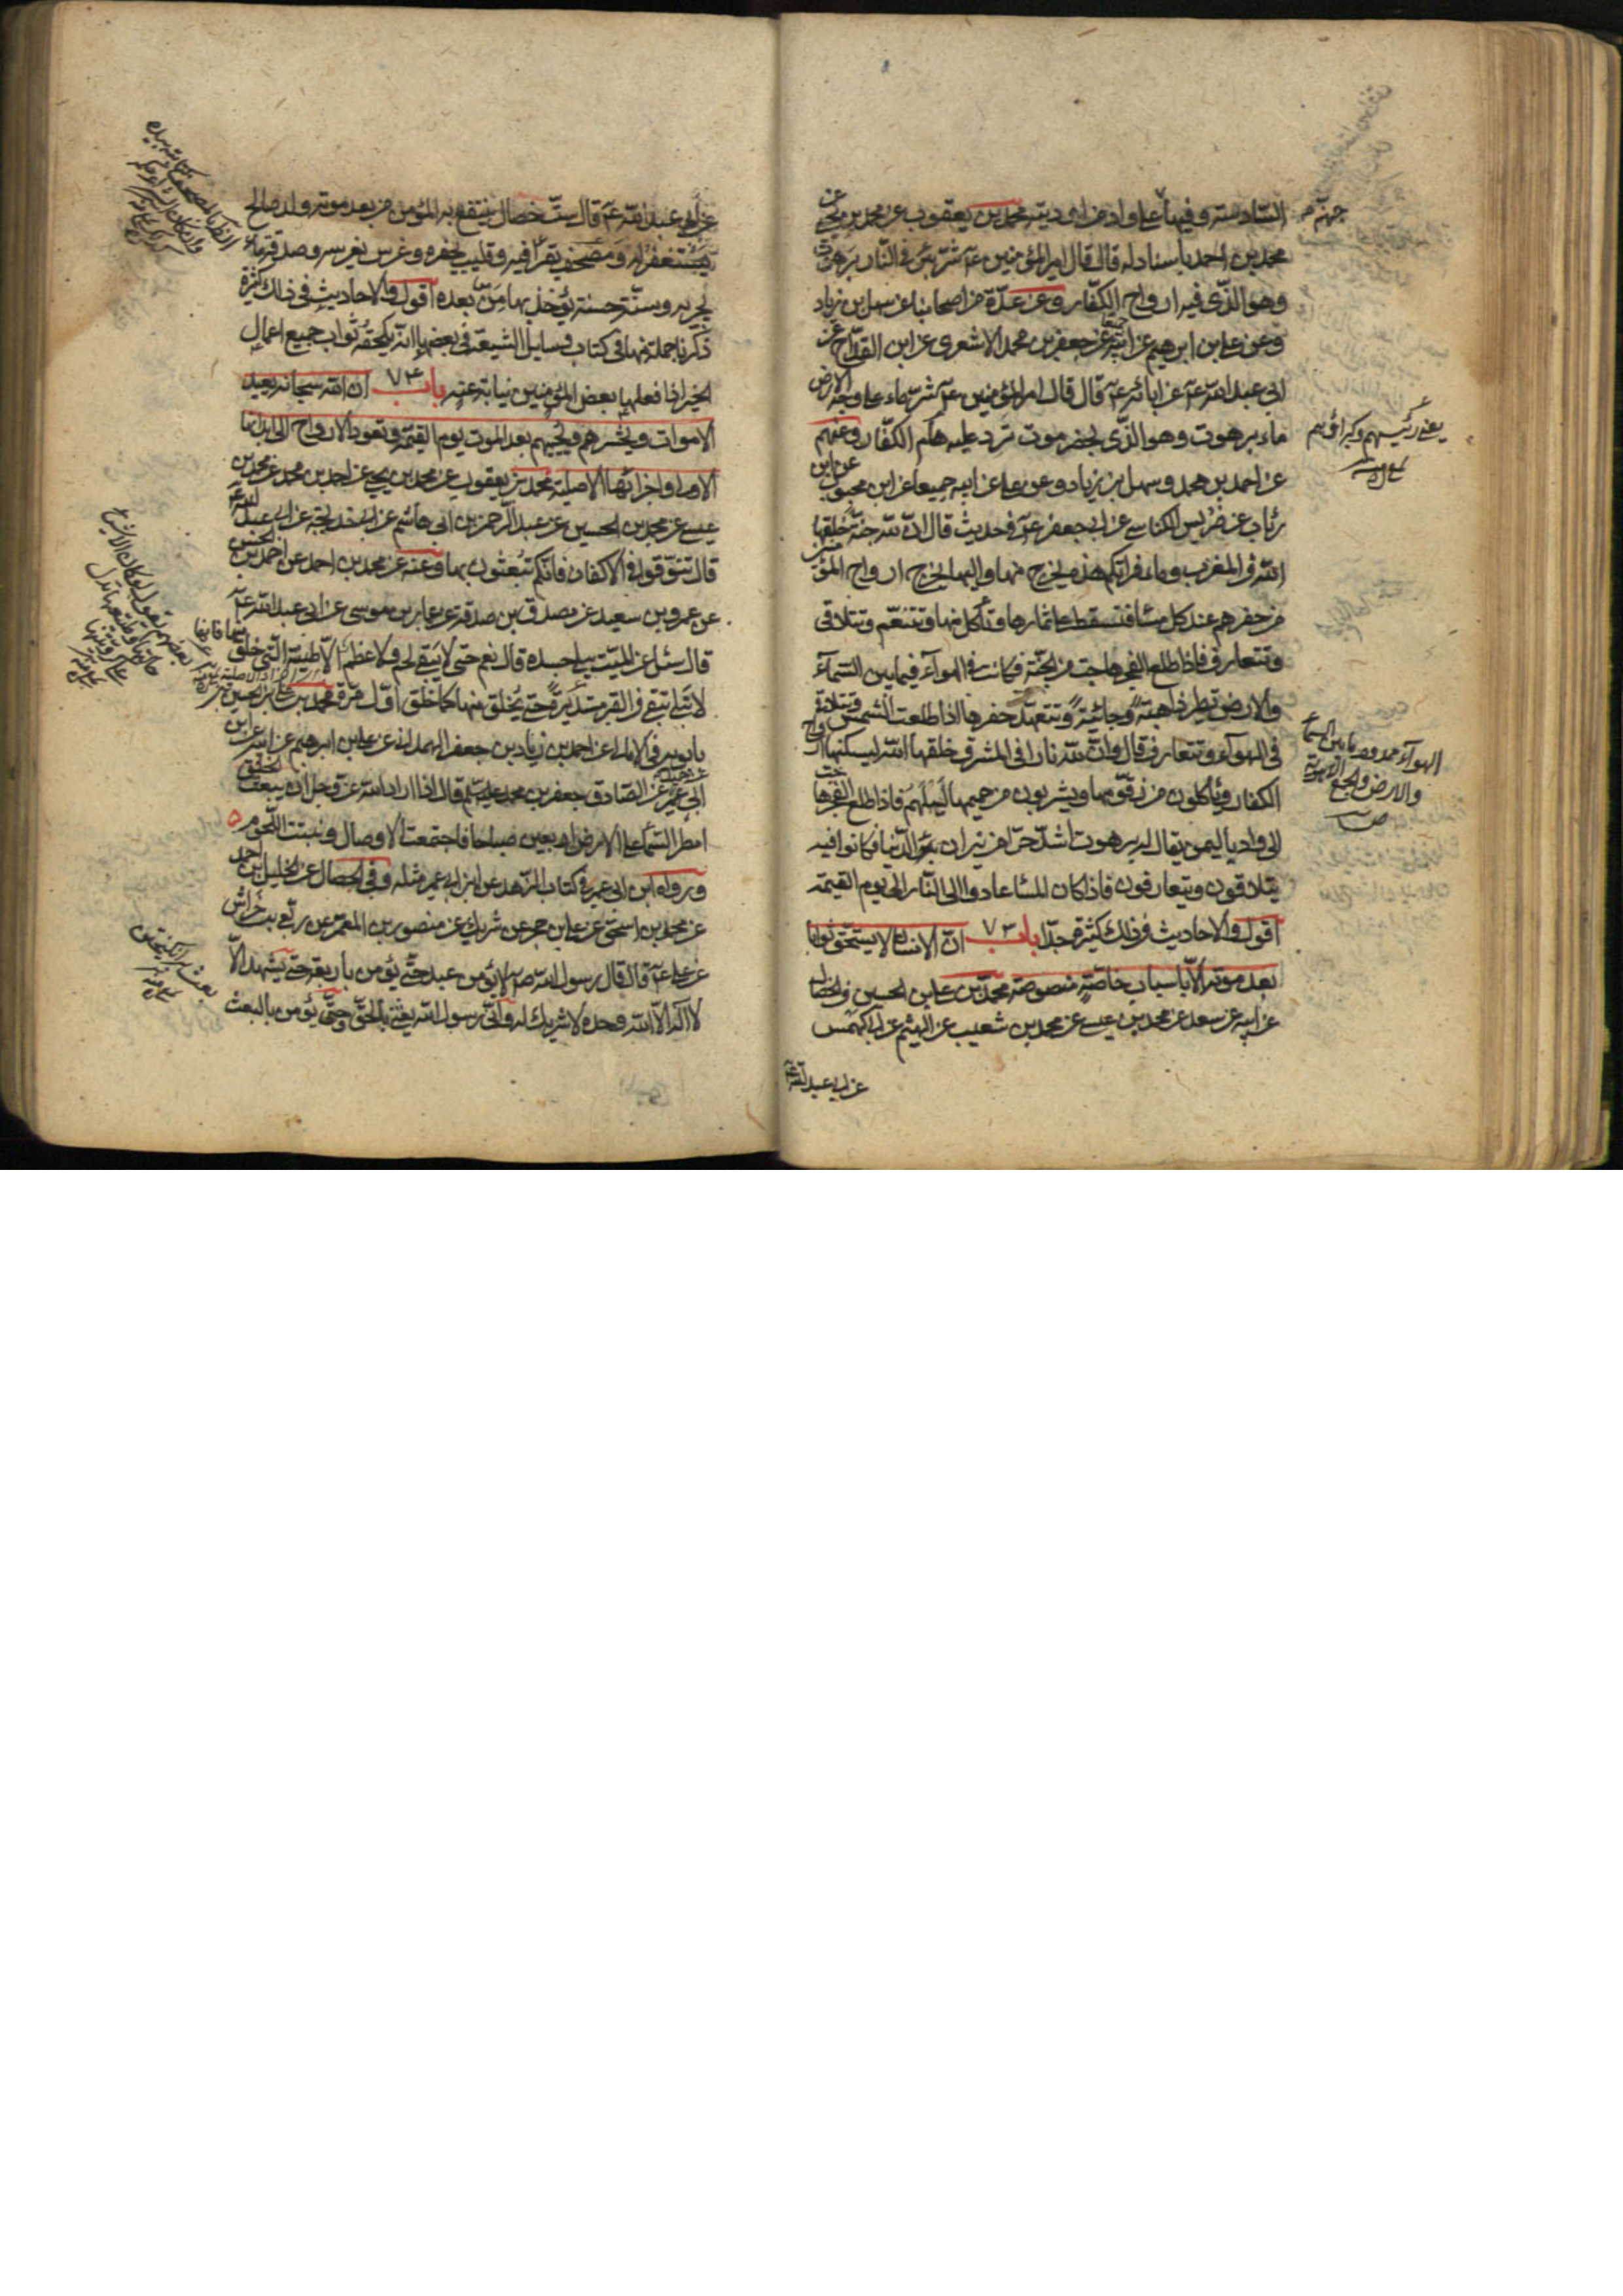 السادسة وفيها على واد من اودية جهنم محمد بن يعقوب عن محمد بن يحيى عن
محمد بن احمد باسناد له قال قال امير المؤمنين ع شر بئر في النار برهوت
وهو الذي فيه ارواح الكفار وعن عدة من اصحابنا عن سهل بن زياد
وعن علي بن ابرهيم عن ابيه عن جعفر بن محمد الاشعري عن ابن القداح عن
ابي عبد الله ع عن ابائه ع قال قال امير المؤمنين ع شر ماء على وجه الارض
ماء برهوت وهو الذي بحضرموت ترد عليه هام الكفار وعنهم
عن احمد بن محمد وسهل بن زياد وعن علي عن ابيه جميعا عن ابن محبوب عن ابن
رئاب عن ضريس الكناسي عن ابي جعفر ع في حديث قال ان لله جنة خلقها
الله في المغرب وماء فراتكم هذه يخرج منها واليها تخرج ارواح المؤمنين
من حفرهم عند كل مساء فتسقط على اثمارها وتأكل منها وتتنعم وتتلاقى
وتتعارف فاذا طلع الفجر هاجت من الجنة فكانت في الهوآء فيما بين السمآء
والارض تطير ذاهبة وجائية وتتعهد حفرها اذا طلعت الشمس وتتلاقى
في الهوآء وتتعارف قال وان لله نارا في المشرق خلقها الله ليسكنها ارواح
الكفار وياكلون من زقومها ويشربون من حميمها ليلهم فاذا طلع الفجر هاجت
الى واد باليمن يقال له برهوت اشد حرا من نيران الدنيا فكانوا فيه
يتلاقون ويتعارفون فاذا كان المسا عادوا الى النار الى يوم القيمة
اقول والاحاديث في ذلك كثيرة جدا باب ٧٣ ان الانسان لا يستحق ثوابا
بعد موته الا باسباب خاصة منصوصة محمد بن علي بن الحسين في الخصال
عن ابيه عن سعد عن محمد بن عيسى عن محمد بن شعيب عن الهيثم عن ابي كهمس
عن ابي عبد الله ع
جهنم
يعني رئيسهم وكبرائهم
الهوآء ممدود ما بين السمآء
والارض والجمع الاهوية
عن ابي عبد الله ع قال ست خصال ينتفع بها المؤمن من بعد موته ولد صالح
يستغفر له ومصحف يقرأ فيه وقليب يحفره وغرس يغرسه وصدقة ماء
يجريه وسنة حسنة يؤخذ بها من بعده اقول والاحاديث في ذلك كثيرة
ذكرنا جملة منها في كتاب وسايل الشيعة في بعضها انه يلحقه ثواب جميع اعمال
الخير اذا فعلها بعض المؤمنين نيابة عنه باب ٧٤ ان الله سبحانه يعيد
الاموات ويحشرهم ويحييهم بعد الموت يوم القيمة وتعود الارواح الى ابدانها
الاولى واجزائها الاصلية محمد بن يعقوب عن محمد بن يحيى عن احمد بن محمد عن محمد بن
عيسى عن محمد بن الحسين عن عبد الرحمن بن ابي هاشم عن ابي خديجة عن ابي عبد الله ع
قال تنوقوا في الاكفان فانكم تبعثون بها وعنه عن محمد بن احمد عن احمد بن الحسن
عن عمرو بن سعيد عن مصدق بن صدقة عن عمار بن موسى عن ابي عبد الله ع
قال سئل عن الميت يبلى جسده قال نعم حتى لا يبقى لحم ولا عظم الا طينته التي خلق منها فانها
لا تبلى تبقى في القبر مستديرة حتى يخلق منها كما خلق اول مرة محمد بن علي بن الحسين بن
بابويه في الامالي عن احمد بن زياد بن جعفر الهمداني عن علي بن ابرهيم عن ابيه عن ابن
ابي عمير عن جميل عن الصادق جعفر بن محمد عليهما السلم قال اذا اراد الله عز وجل ان يبعث الخلق
امطر السمآء على الارض اربعين صباحا فاجتمعت الاوصال ونبتت اللحوم
ورواه ابن ابي عمير في كتاب الزهد عن ابن ابي عمير مثله وفي الخصال عن الخليل بن احمد
عن محمد بن اسحق عن علي بن حجر عن شريك عن منصور بن المعتمر عن ربعي بن خراش
عن علي ع قال قال رسول الله ص لا يؤمن عبد حتى يؤمن باربعة حتى يشهد الا
لا اله الا الله وحده لا شريك له واني رسول الله بعثني بالحق وحتى يؤمن بالبعث